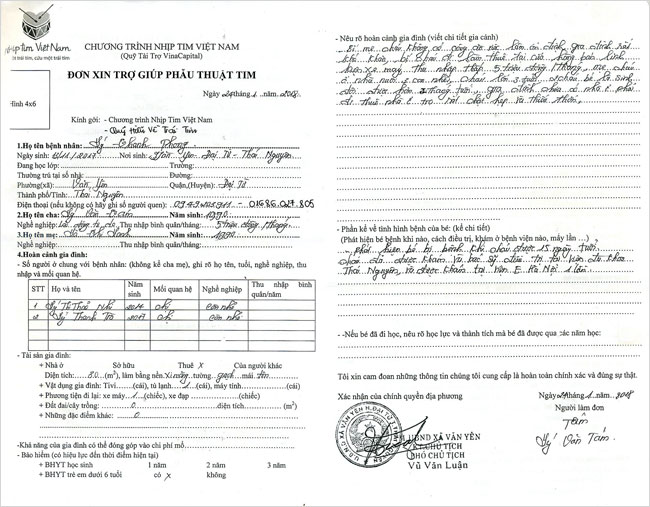 Nhịp Tim Việt Nam
CHƯƠNG TRÌNH NHỊP TIM VIỆT NAM
(Quỹ Tài Trợ VinaCapital)
ĐƠN XIN TRỢ GIÚP PHẪU THUẬT TIM
Hình 4x6
Ngày 24 tháng 1 năm 2018
Kính gởi: - Chương trình Nhịp Tim Việt Nam
1.Họ tên bệnh nhân: Lý Thanh Phong
Ngày sinh: Nơi sinh: Văn Yên Đại Từ - Thái Nguyên
Đang học lớp: Trường:
Thường trú tại số nhà: Đường:
Phường(xã): Văn Yên Quận,(Huyện): Đại Từ
Thành phố/Tỉnh: Thái Nguyên
Điện thoại (nếu không có hãy ghi số người quen): 01686.027.805
2.Họ tên cha: Lý Văn Năm sinh: 1990
Nghề nghiệp: Lao động tự do Thu nhập bình quân/tháng: 5 triệu đồng / tháng
3.Họ tên mẹ: Năm sinh: 1992
Nghề nghiệp: Thu nhập bình quân/tháng:
4.Hoàn cảnh gia đình:
- Số người ở chung với bệnh nhân: (không kể cha mẹ), ghi rõ họ tên, tuổi, nghề nghiệp, thu nhập và mối quan hệ.
STT Họ và tên Năm sinh Mối quan hệ Nghề nghiệp Thu nhập bình quân/năm
1 Lý Thị Thảo Nhi 2014 chị còn nhỏ
2 Lý Thanh Trà 2017 chị còn nhỏ
- Tài sản gia đình:
+ Nhà ở Sở hữu Thuê X Của người khác
Diện tích: 30 (m2), làm bằng nền xi măng, tường gạch mái tôn
+ Vật dụng gia đình: Tivi (cái), tủ lạnh 1 (cái), máy tính (cái)
+ Phương tiện đi lại: xe máy 1 (chiếc), xe đạp (chiếc)
+ Đất đai/cây trồng: 0 diện tích (m2)
+ Những đặc điểm khác: 0
-Khả năng của gia đình có thể đóng góp vào chi phí mổ
- Bảo hiểm (có hiệu lực đến thời điểm hiện tại)
+ BHYT học sinh 1 năm 2 năm 3 năm
+ BHYT trẻ em dưới 6 tuổi có X không
- Nêu rõ hoàn cảnh gia đình (viết chi tiết gia cảnh)
Bố mẹ cháu không có công ăn việc làm ổn định, gia đình rất
khó khăn, bố đi làm thuê tại cửa hàng bán linh
kiện xe máy. Thu nhập thấp 5 triệu đồng / tháng, mẹ cháu
gia đình chưa có nhà ở phải
đi thuê nhà ở trọ rất chật hẹp và thiếu thốn.
- Phần kể về tình hình bệnh của bé: (kể chi tiết)
(Phát hiện bé bị bệnh khi nào, cách điều trị, khám ở bệnh viện nào, mấy lần ...)
- phát hiện bé bị bệnh khi cháu được 15 ngày tuổi
Thái Nguyên, và được khám tại viện E Hà Nội 1 lần.
- -Nếu bé đã đi học, nêu rõ học lực và thành tích mà bé đã được qua các năm học:
Tôi xin cam đoan những thông tin chúng tôi cung cấp là hoàn toàn chính xác và đúng sự thật.
Xác nhận của chính quyền địa phương
Ngày 24 tháng 1 năm 2018
Người làm đơn
UBND XÃ VĂN YÊN
KT CHỦ TỊCH
PHÓ CHỦ TỊCH
Vũ Văn Luận
Tám
Lý Văn Tám